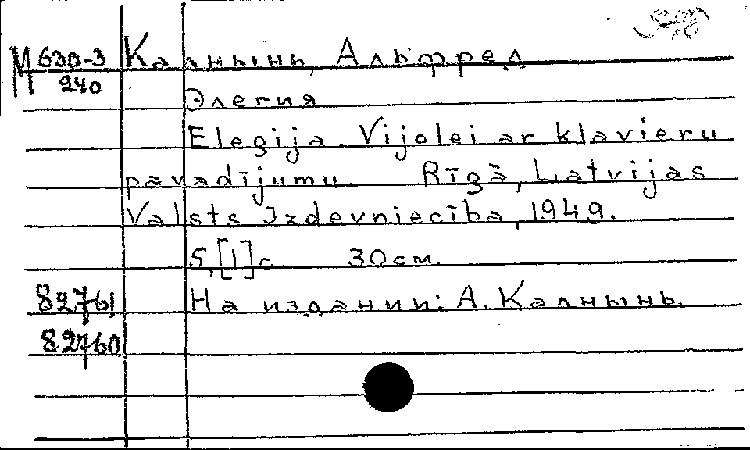 М 630-3 Калнынь, Альфред
240
Элегия
Elegija Vijolei ar klavieru
pavadījumu Rīgā, Latvijas
Valsts Izdevniecība, 1949.
5,[1]с 30см.
82761 На издании: А. Калнынь.
82760